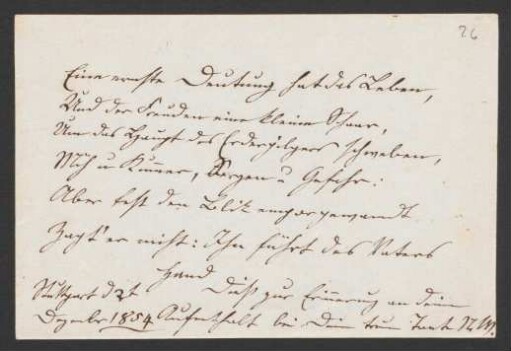 26
Eine ernste Deutung hat das Leben,
Und der Freuden eine kleine Schaar,
Um das Haupt des Erdepilgers schweben,
Müh u Kummer, Sorgen u Gefahr:
Aber fest den Blik emporgewandt
Zagt er nicht: Ihn führt des Vaters
Hand
Dieß zur Erinnerung an deinen
Stuttgart d 2t
Dezember 1854 Aufenthalt bei Deiner treuen Tante